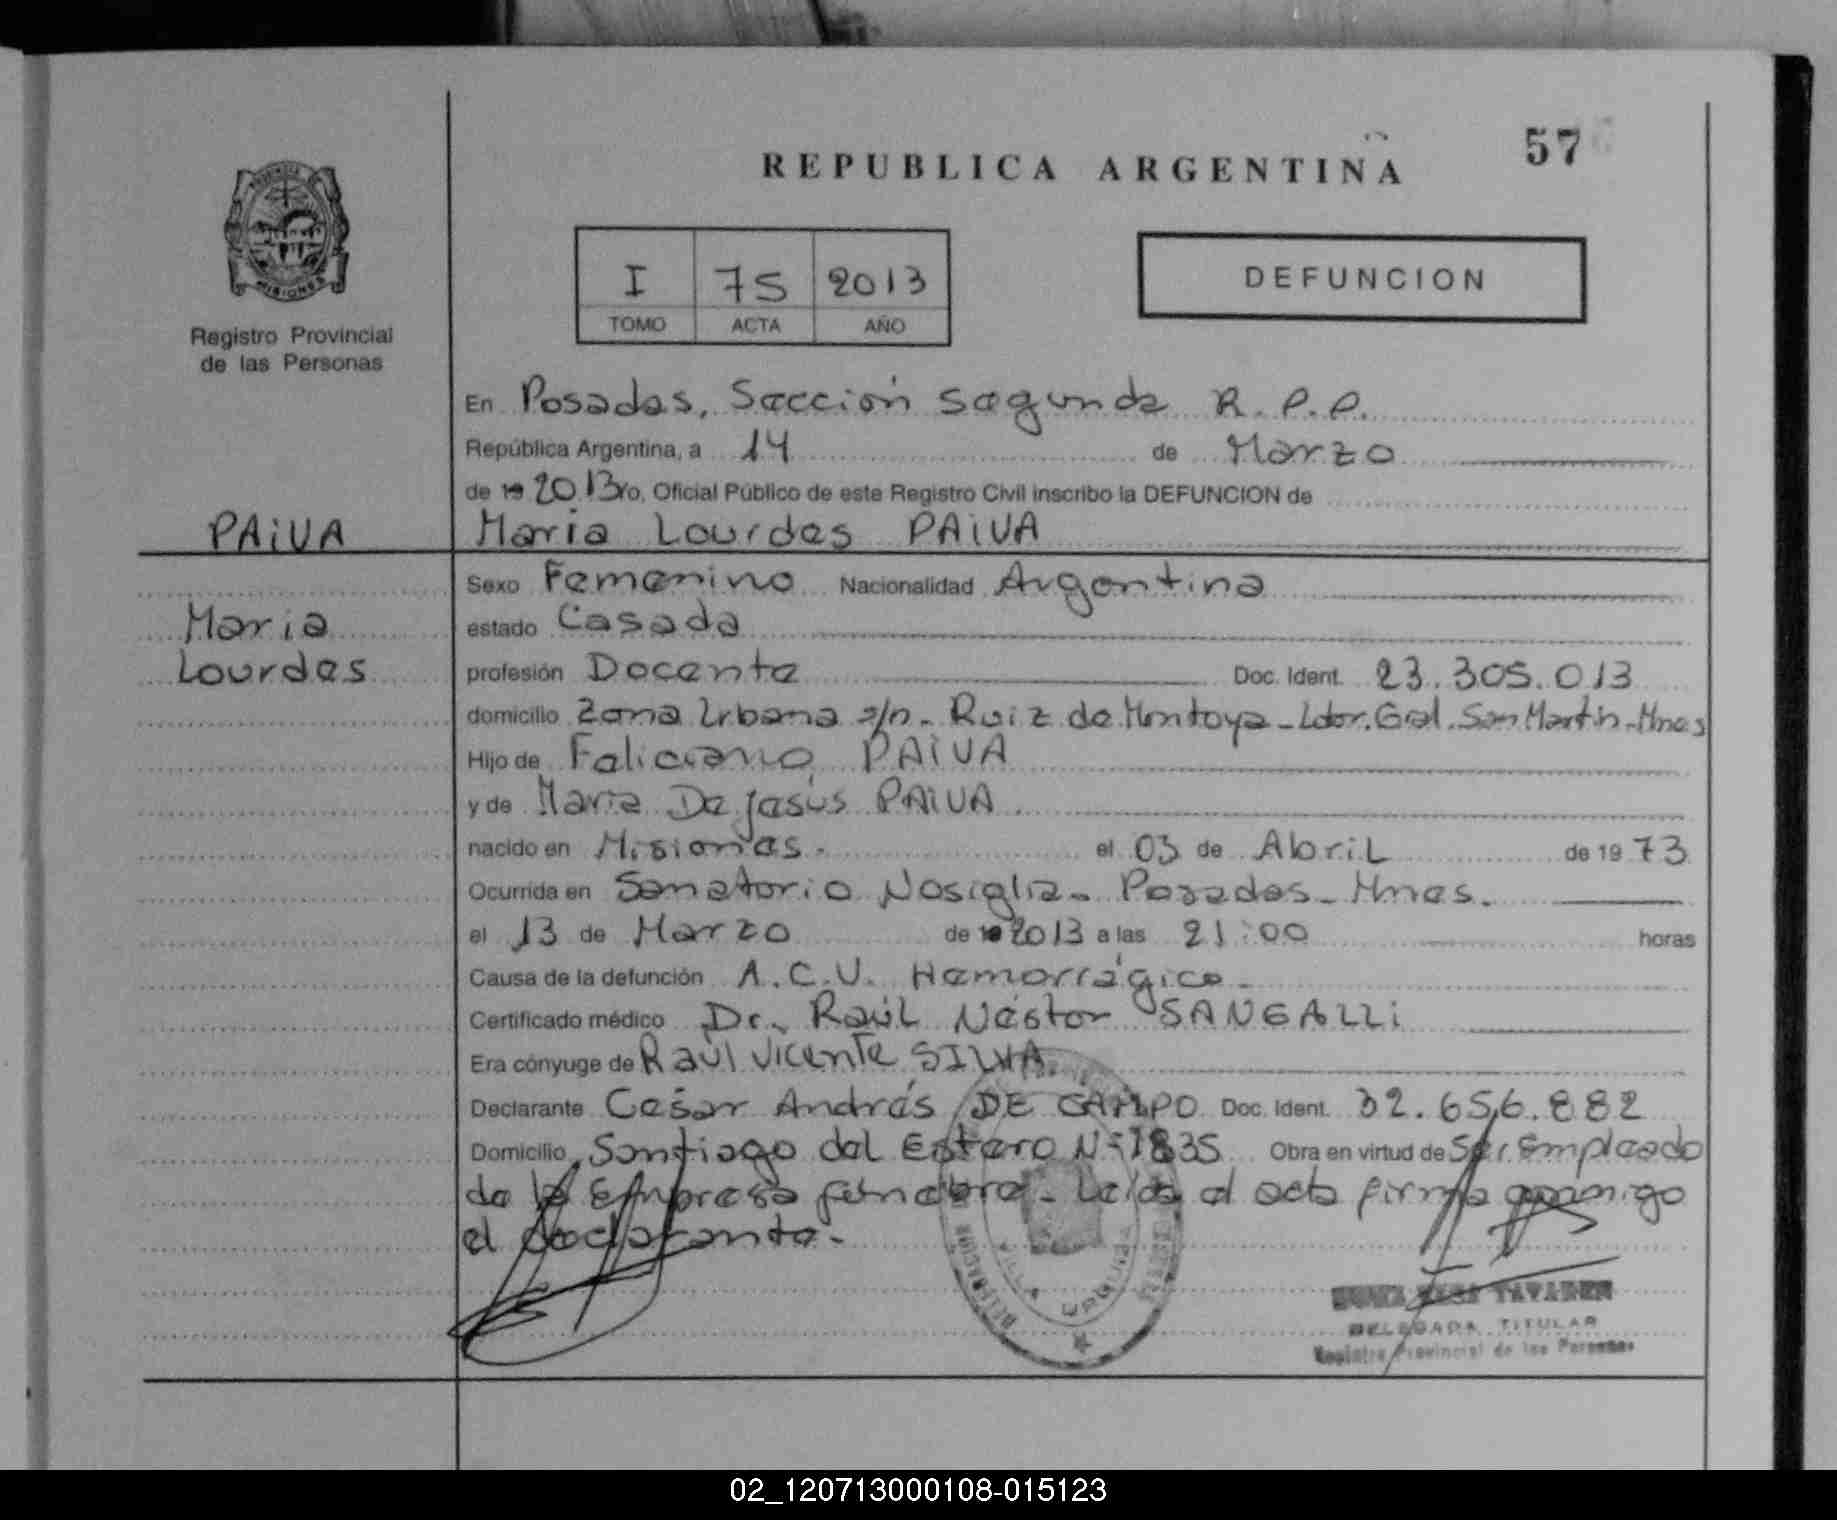 57
REPUBLICA ARGENTINA
I 75 2013
TOMO ACTA AÑO
DEFUNCION
PROVINCIA
MISIONES
Registro Provincial
de las Personas
En Posadas, Sección Segunda R.P.P.
República Argentina, a 14 de Marzo
de 19 2013 Yo, Oficial Público de este Registro Civil inscribo la DEFUNCION de
PAIVA
Maria Lourdes PAIVA
Maria
Lourdes
Sexo Femenino Nacionalidad Argentina
estado Casada
profesión Docente Doc. Ident. 23.305.013
domicilio Zona Urbana s/n - Ruiz de Montoya - Ldor. Gral. San Martin - Mnes
Hijo de Feliciano PAIVA
y de Maria De Jesús PAIVA
nacido en Misiones. el 03 de Abril de 19 73
Ocurrida en Sanatorio Nosiglia - Posadas - Mnes.
el 13 de Marzo de 19 2013 a las 21:00 horas
Causa de la defunción A.C.V. Hemorrágico
Certificado médico Dr. Raúl Néstor SANGALLI
Era cónyuge de Raúl Vicente SILVA.
Declarante César Andrés DE CAMPO Doc. Ident. 32.656.882
Domicilio Santiago del Estero Nº 1835 Obra en virtud de Ser Empleado
de la Empresa fúnebre - Leída el acta firma conmigo
el declarante.-
VILLA URQUIZA
TAVARES
DELEGADA TITULAR
Registro Provincial de las Personas
02_120713000108-015123